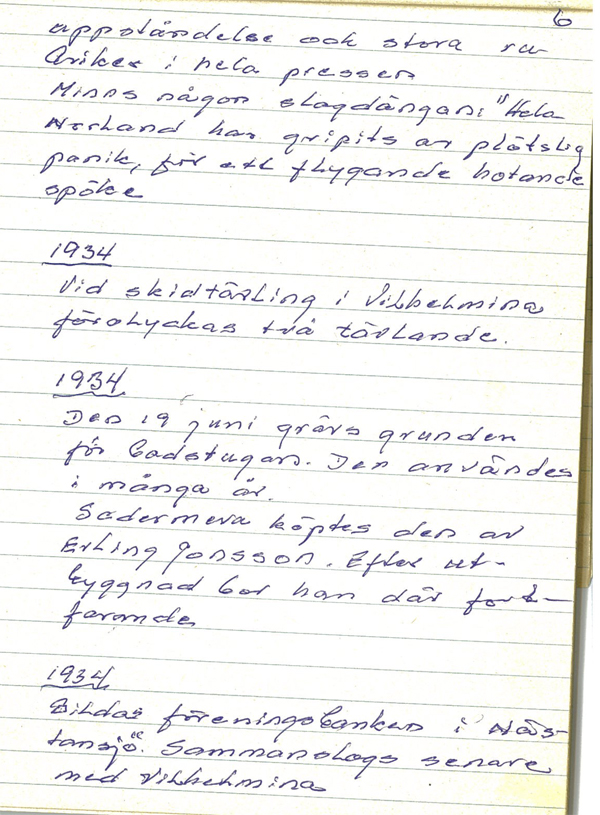 6
uppståndelse och stora ru-
briker i hela pressen
Minns någon slagdängan: "Hela
Norrland har gripits av plötslig
panik, för ett flygande hotande
spöke
1934
Vid skidtävling i Vilhelmina
förolyckas två tävlande.
1934
Den 19 juni grävs grunden
för badstugan. Den användes
i många år.
Sedermera köptes den av
Erling Jonsson. Efter ut-
byggnad bor han där fort-
farande
1934
Bildas föreningsbanken i Näs-
tansjö. Sammanslogs senare
med Vilhelmina